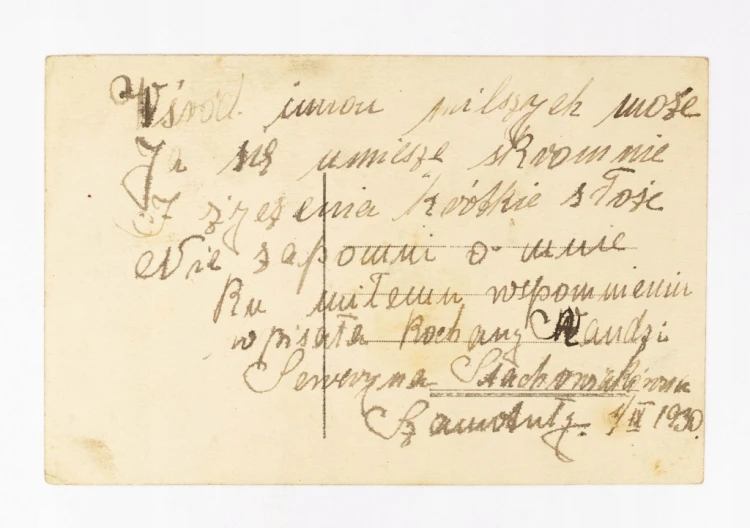 Wśród imion milszych może
Ja się umieszę skromnie
I życzenia krótkie złożę
Nie zapomni o mnie
Ku miłemu wspomnieniu
wpisała Kochanej Wandzi
Seweryna
Szamotuły. 1/IV 1930.